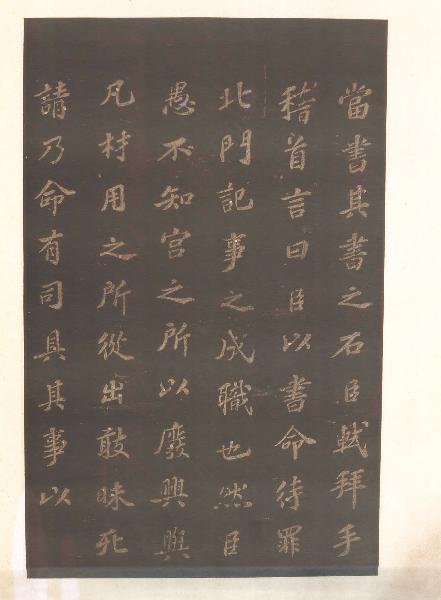 當書其書之石臣軾拜手
稽首言曰臣以書命待罪
北門記事之成職也然臣
愚不知宮之所以廢興與
凡材用之所從出敢昧死
請乃命有司具其事以